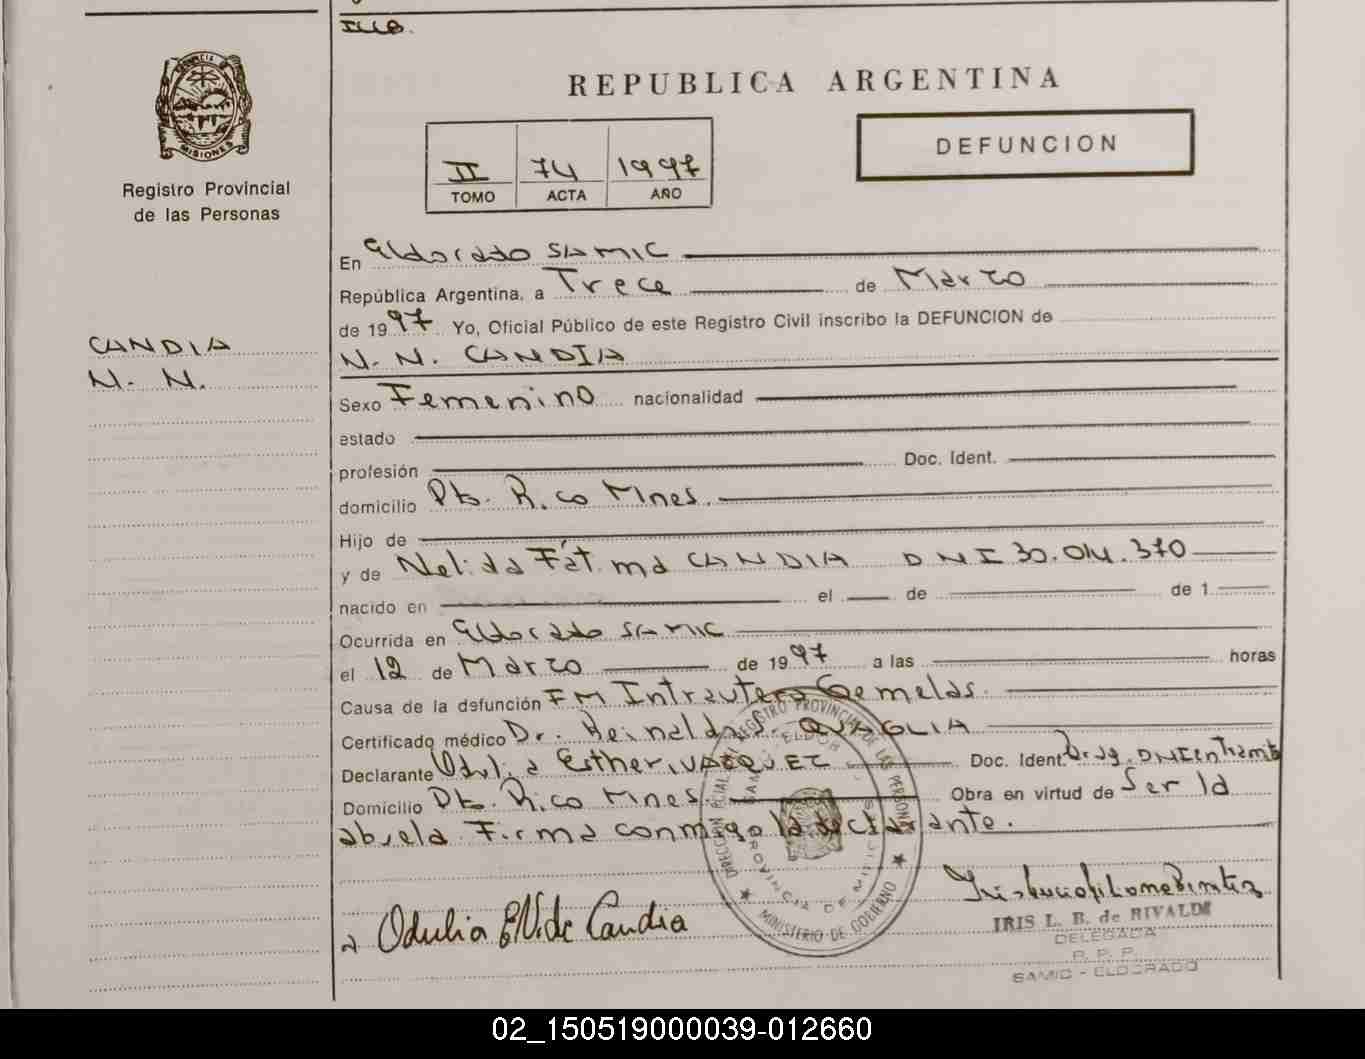 REPUBLICA ARGENTINA
PROVINCIA DE
MISIONES
Registro Provincial
de las Personas
II 74 1997
TOMO ACTA AÑO
DEFUNCION
CANDIA
N. N.
En Eldorado SAMIC
República Argentina, a Trece de Marzo
de 1997 Yo, Oficial Público de este Registro Civil inscribo la DEFUNCION de
N. N. CANDIA
Sexo Femenino nacionalidad
estado
profesión Doc. Ident.
domicilio Pto. Rico Mnes.
Hijo de
y de Nelida Fátima CANDIA DNI 30.014.370
nacido en el de de 1
Ocurrida en Eldorado SAMIC
el 12 de Marzo de 1997 a las horas
Causa de la defunción FM Intrautero Gemelas.
Certificado médico Dr. Reinaldo S. QUAGLIA
Declarante Odulia Esther VAZQUEZ Doc. Ident. Urug. DNI en trámite
Domicilio Pto. Rico Mnes. Obra en virtud de Ser la
abuela Firma conmigo la declarante.
Odulia E V. de Candia
IRIS L. B. de RIVALDI
DELEGADA
R. P. P.
SAMIC - ELDORADO
DIRECCION PCIAL. DEL REGISTRO PROVINCIAL DE LAS PERSONAS
MINISTERIO DE GOBIERNO
PROVINCIA DE MISIONES
02_150519000039-012660